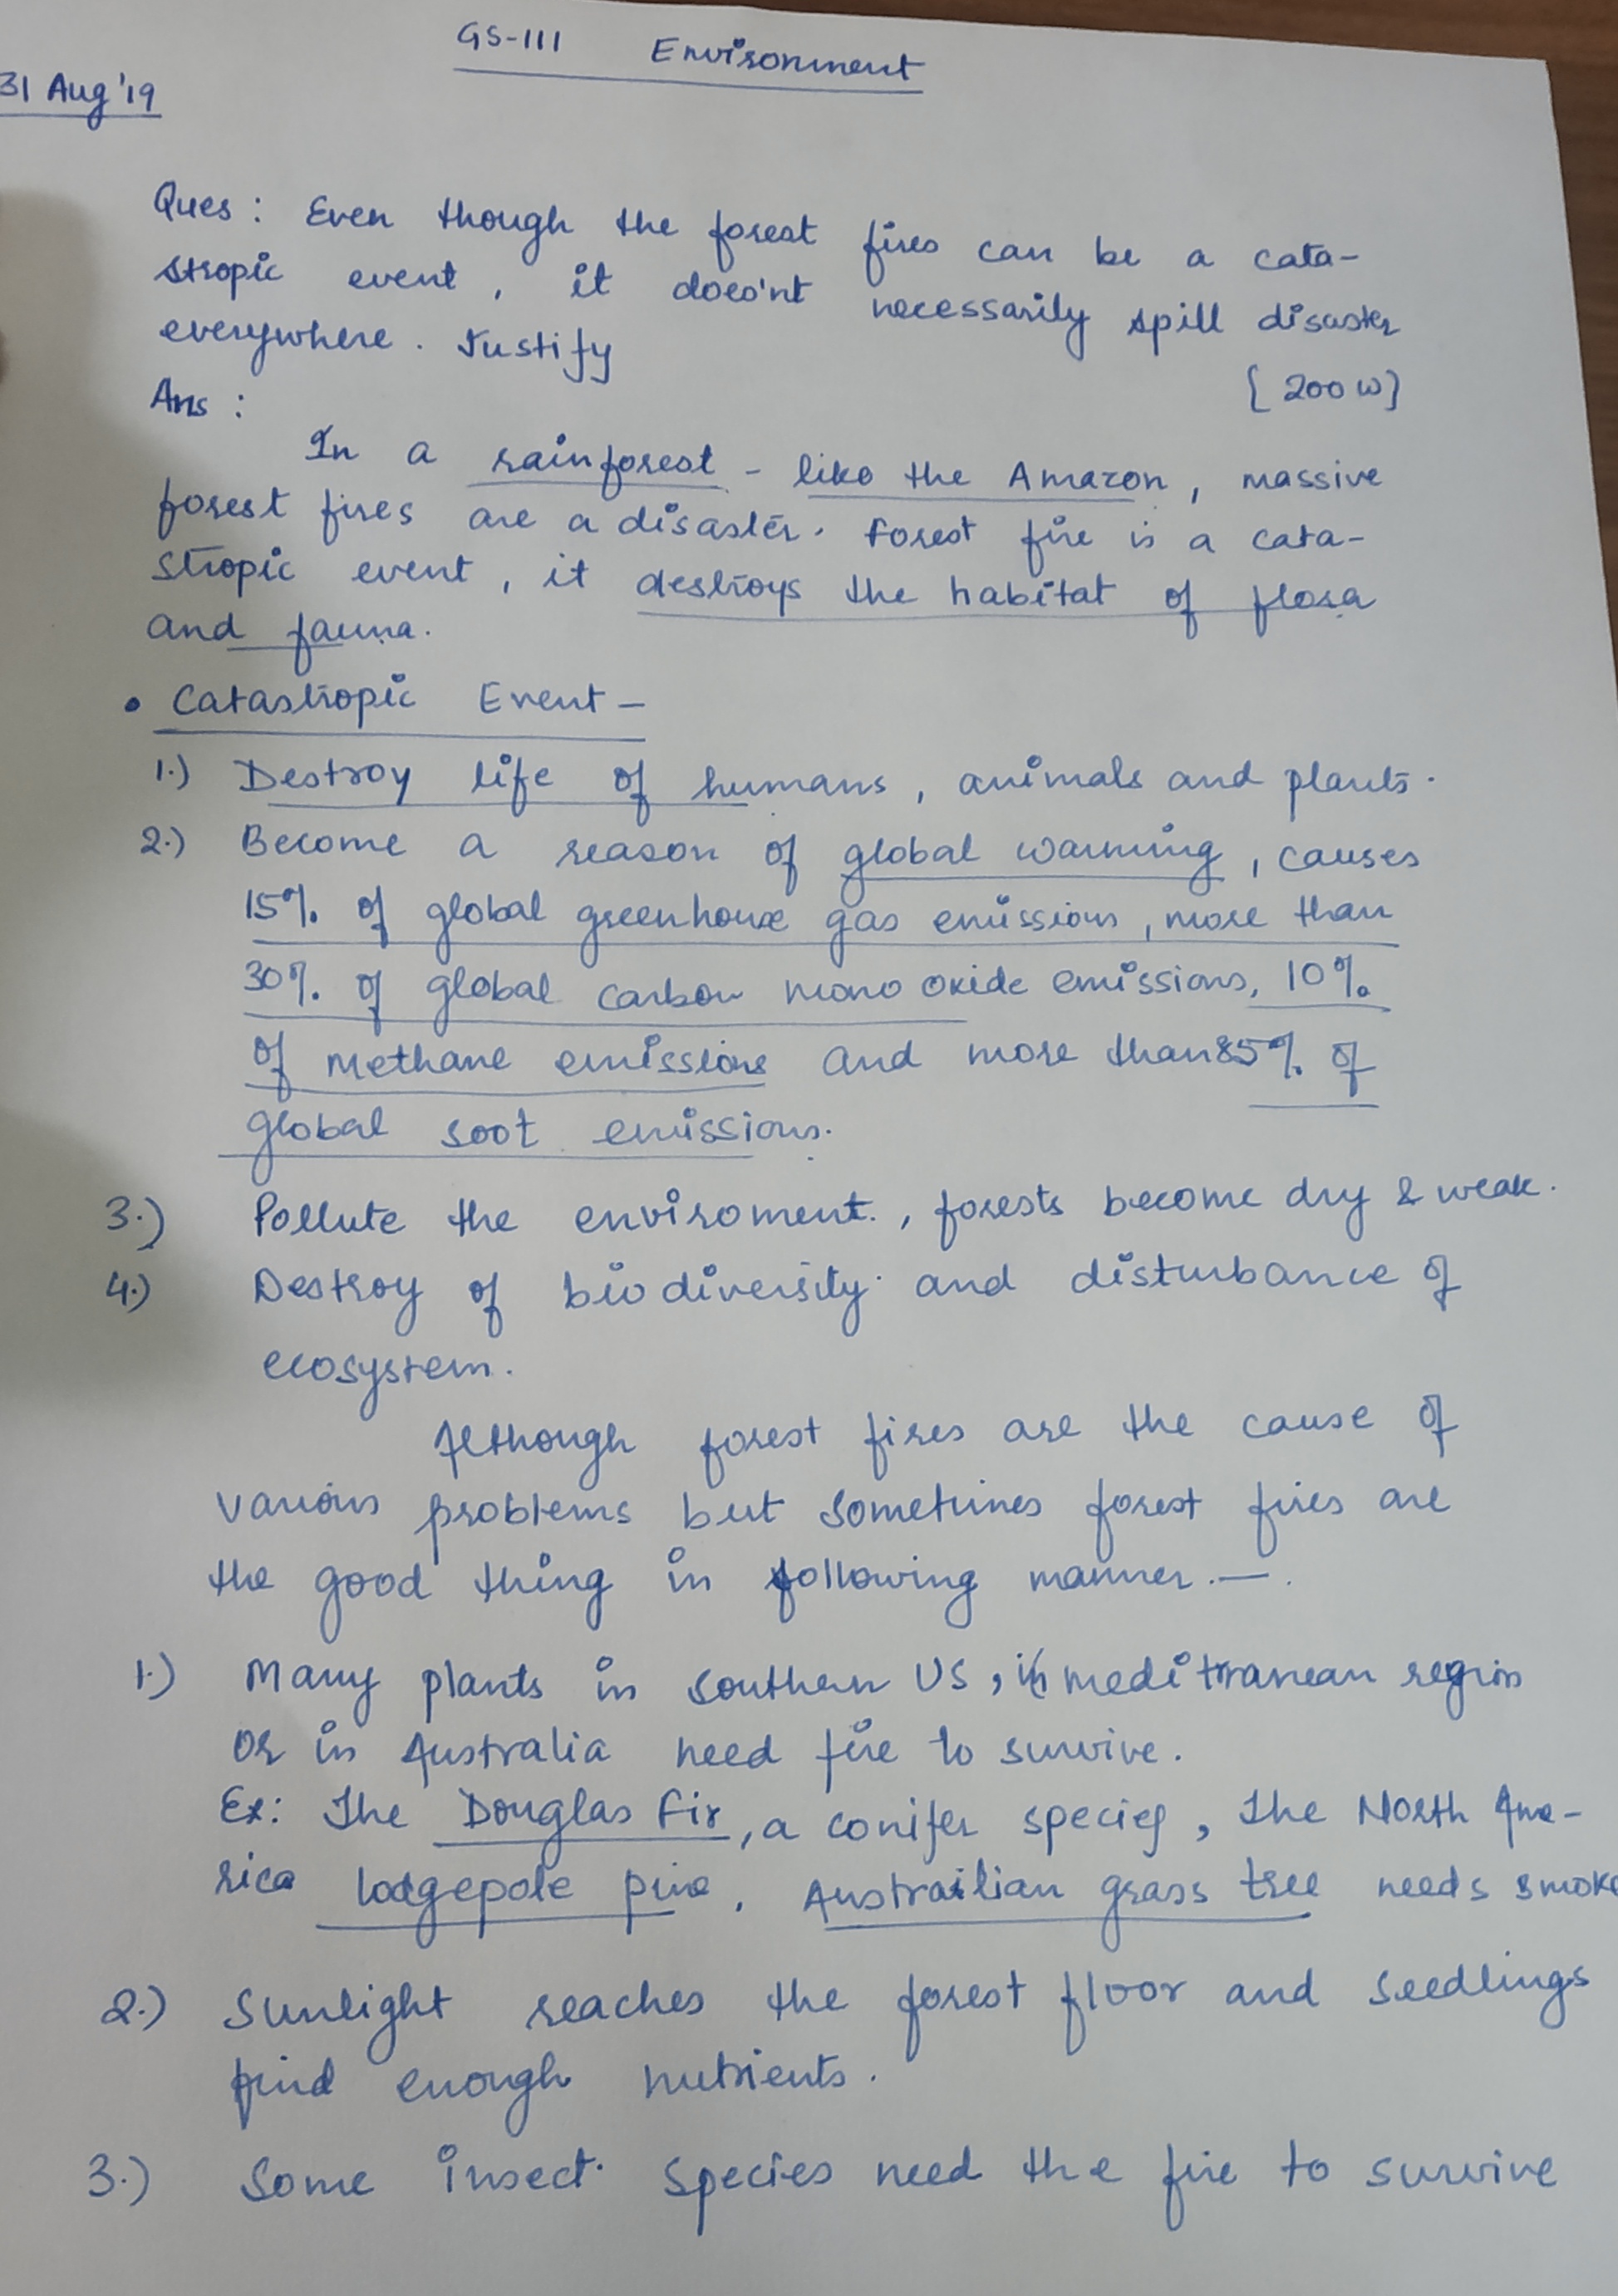 GS-III Environment
31 Aug '19
Ques : Even though the forest fires can be a cata-
stropic event , it does'nt necessarily spill disaster
everywhere . Justify
[ 200 W ]
Ans :
In a rainforest - like the Amazon , massive
forest fires are a disaster . Forest fire is a cata-
stropic event , it destroys the habitat of flora
and fauna .
• Catastropic Event -
1.) Destroy life of humans , animals and plants .
2.) Become a reason of global warming , causes
15% of global greenhouse gas emissions , more than
30% of global carbon mono oxide emissions, 10%
of methane emissions and more than 85% of
global soot emissions .
3.) Pollute the enviroment . , forests become dry & weak .
4.) Destroy of biodiversity and disturbance of
ecosystem .
Although forest fires are the cause of
various problems but sometimes forest fires are
the good thing in following manner . — .
1.) Many plants in southern US , meditranean region
or in Australia need fire to survive .
Ex : The Douglas Fir , a conifer species , the North Ame-
rica lodgepole pine , Austrailian grass tree needs smoke
2.) Sunlight reaches the forest floor and seedlings
find enough nutrients .
3.) Some insect species need the fire to survive